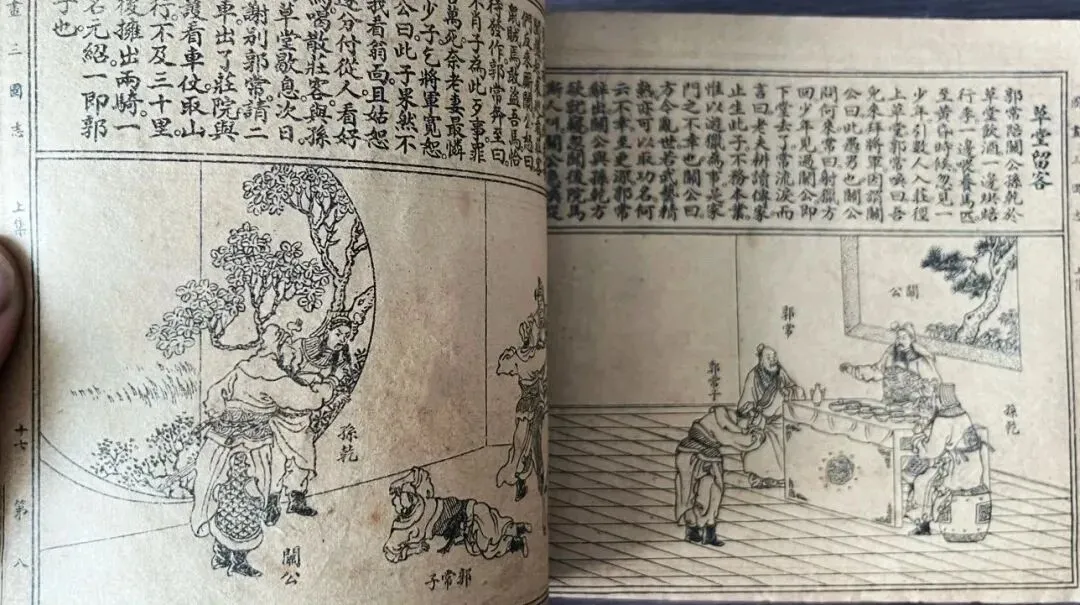 草堂留客
郭常陪關公孫乾於
草堂飲酒一邊烘焙
行李一邊喂養馬匹
至黃昏時候忽見一
少年引數人入莊徑
上草堂郭常喚曰吾
兒來拜將軍因謂關
公曰此愚男也關公
問何來常曰射獵方
回少年見過關公即
下堂去了常流淚而
言曰老夫耕讀傳家
止生此子不務本業
惟以遊獵為事是家
門之不幸也關公曰
方今亂世若武藝精
熟亦可以取功名何
云不幸至更深郭常
辭出關公與孫乾方
欲就寢忽聞後院馬
嘶人叫關公急喚從
關公
郭常
郭常子
孫乾
們反來廝鬧公怒曰
鼠賊焉敢盜吾馬恰
待發作郭常奔至曰
不肖子為此歹事罪
合萬死奈老妻最憐
少子乞將軍寬恕。
公曰此子果然不
我看翁面且姑恕
遂分付從人看好
馬喝散莊客與孫
草堂歇息次日
謝別郭常。請二
車出了莊院與
護看車仗取山
行不及三十里
後擁出兩騎一
名元紹一即郭
子也。
孫乾
關公
郭常子
畫三國志
上集
十七
第八